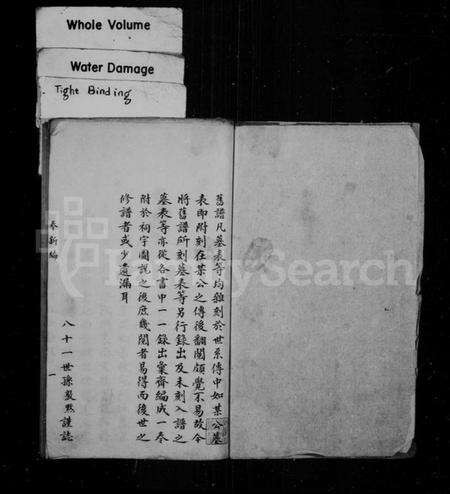 Whole Volume
Water Damage
Tight Binding
舊譜凡墓表等均雖刻於世系傳中如某公墓
表即附刻在某公之傳後翻閱頗覺不易故今
將舊譜所刻墓表等另行錄出及未刻入譜之
墓表等亦從各書中一一錄出彙齊編成一卷
附於祠宇圖說之後庶幾閱者易得而後世之
修譜者或少遺漏耳
八十一世孫 熙謹誌
奉新編
一
FamilySearch